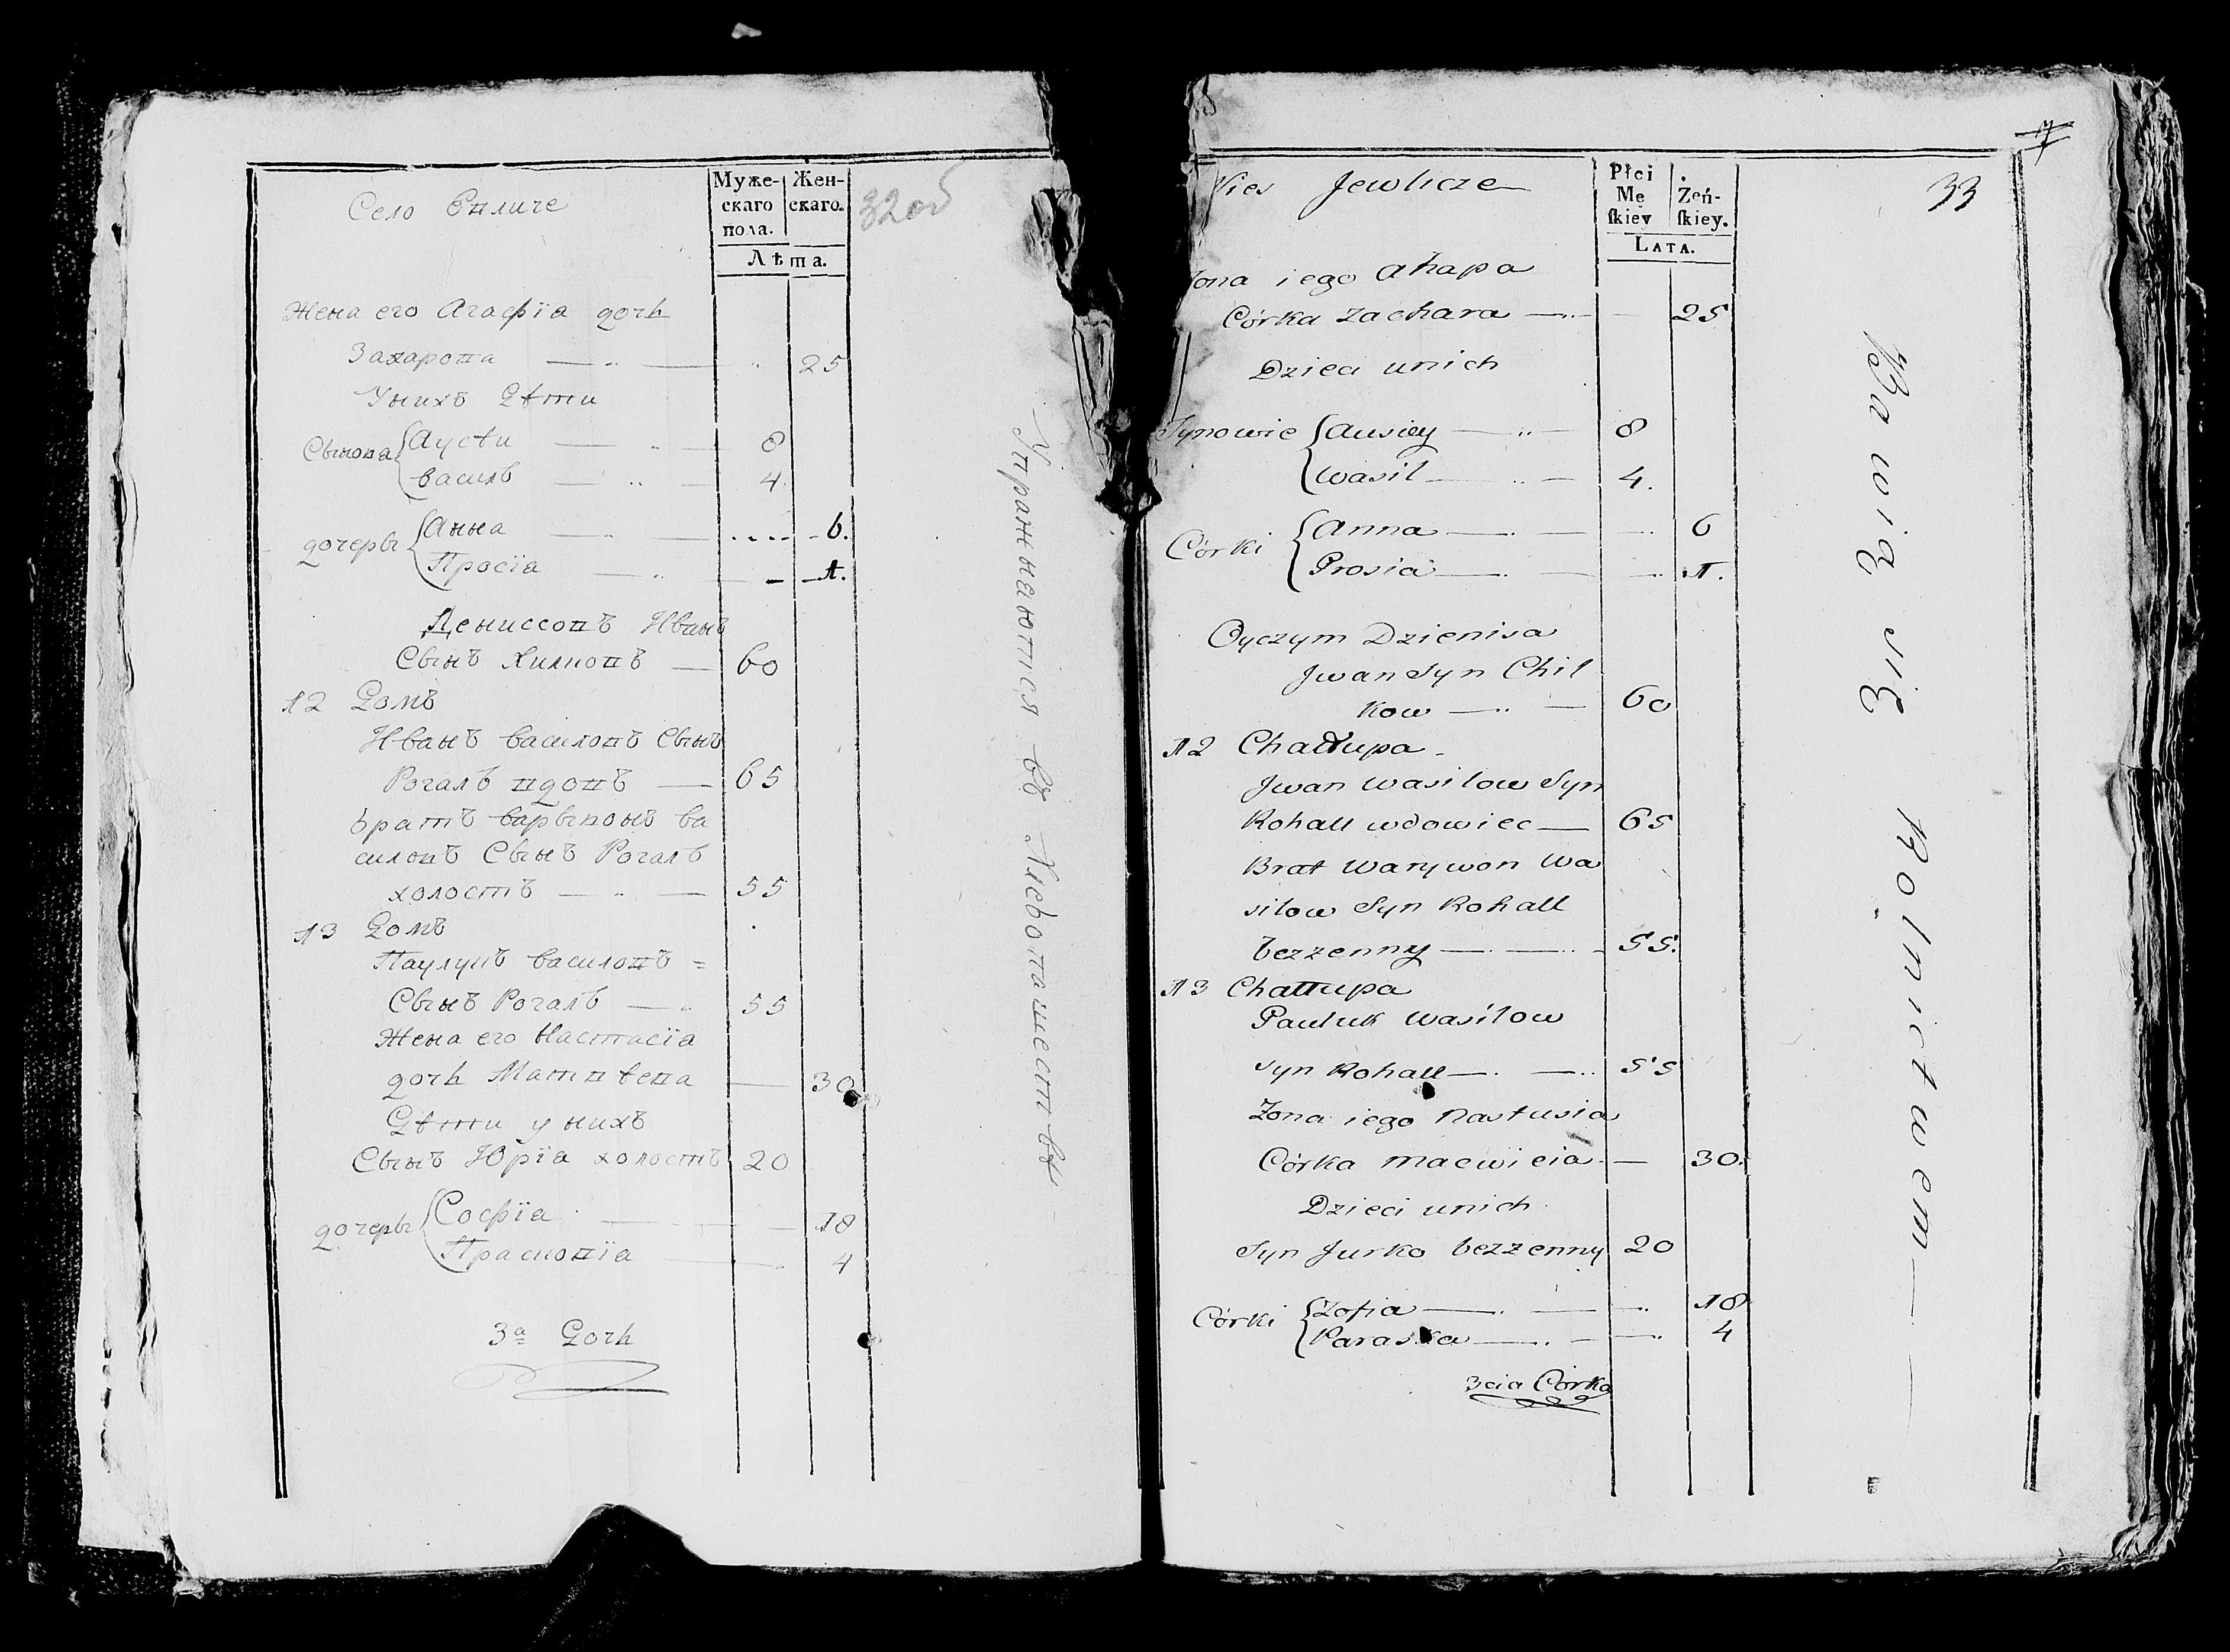 Село Евличе
Муже-
скаго
пола.
Жен-
скаго.
Лѣта.
32об
Жена его Агафїа дочь
Захарова — „ — „ 25
У нихъ Дѣти
Сынова { Аусѣи — „ — 8
Василь — „ — 4
дочеры { Анна — „ — 6.
Просїа — „ — 1.
Дениссовъ Иванъ
Сынъ Хилковъ — 60
12 Домъ
Иванъ Василовъ Сынъ
Рогаль вдовъ — 65
братъ Варывонъ Ва
силовъ Сынъ Рогаль
холостъ — „ — 55
13 Домъ
Паулукъ Василовъ =
Сынъ Рогаль — „ 55
Жена его Настасїа
дочь Матвѣева — 30
Дѣти у нихъ
Сынъ Юрїа холостъ 20
дочеры { Софїа — 18
Прасковїа — 4
3а Дочь
Упражнаются въ Хлебопашествѣ
33
Wies Jewlicze
Płci
Mę
ſkiey
Żeń-
ſkiey.
Lata.
Żona iego Ahapa
Córka Zachara — 25
Dzieci unich
Synowie { Ausiey — „ — 8
Wasil — „ — 4.
Córki { Anna — 6
Prosia — 1.
Oyczym Dzienisa
Jwan Syn Chil
kow — „ — 60
12 Chałłupa
Jwan Wasilow Syn
Rohall wdowiec — 65
Brat Warywon Wa
silow Syn Rohall
bezzenny — 55.
13 Chałłupa
Pauluk Wasilow
Syn Rohall — 55
Zona iego Nastusia
Córka Macwieia — 30.
Dzieci unich
Syn Jurko bezzenny 20
Córki { Zofia — 18
Paraska — 4
3cia Córka
Bawią się Rolnictwem —